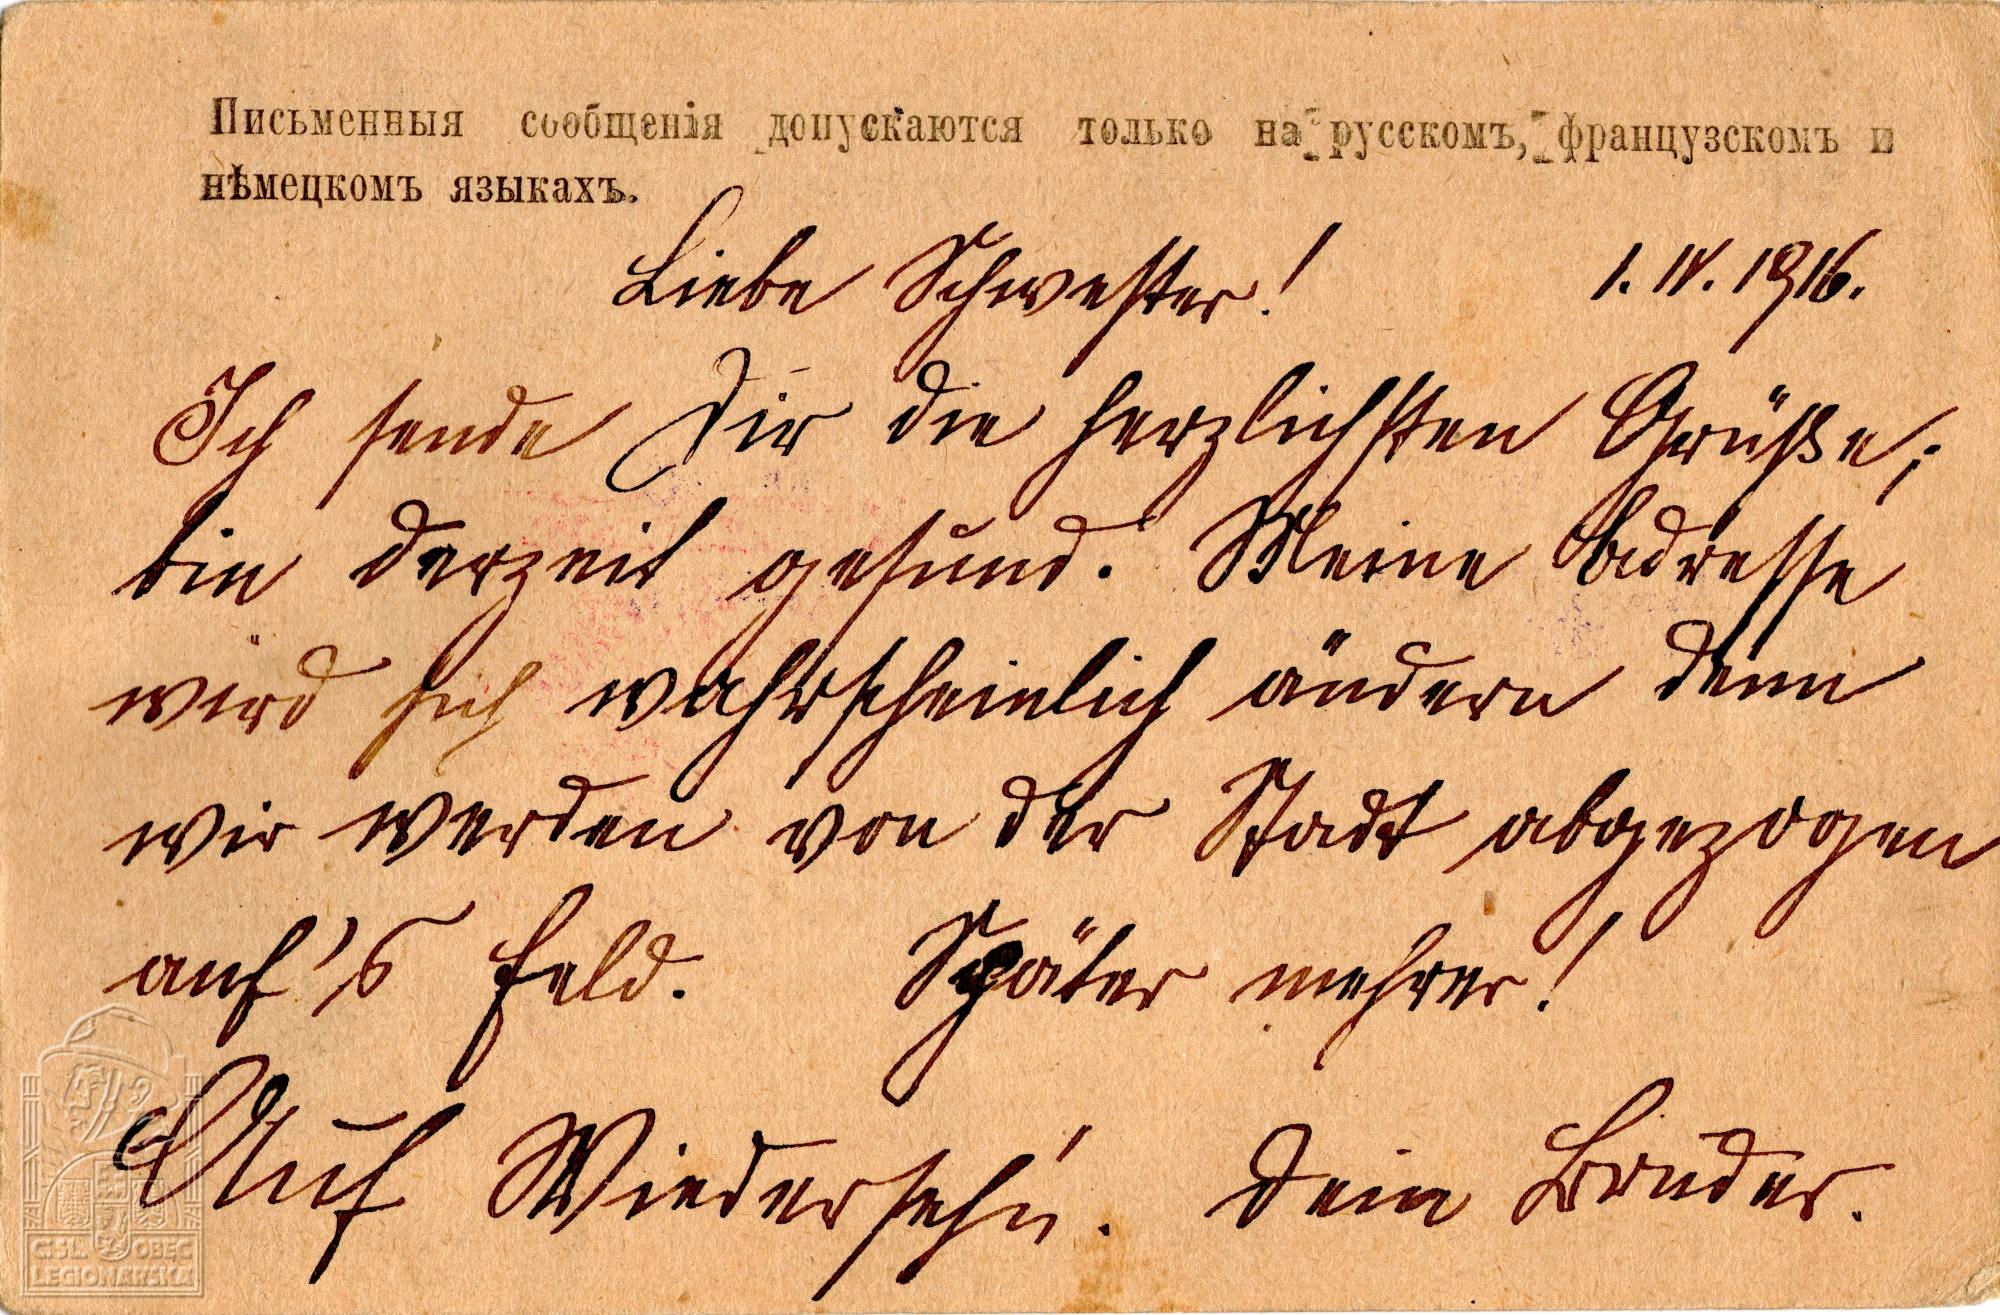 Письменныя сообщенія допускаются только на русскомъ, французскомъ и
нѣмецкомъ языкахъ.
Liebe Schwester! 1. IV. 1916.
Ich sende Dir die herzlichsten Grüße,
bin derzeit gesund. Meine Adresse
wird sich wahrscheinlich ändern denn
wir werden von der Stadt abgezogen
auf's Feld. Später mehrer!
Auf Wiederseh'n. Dein Bruder.
ČSL. OBEC
LEGIONÁŘSKÁ